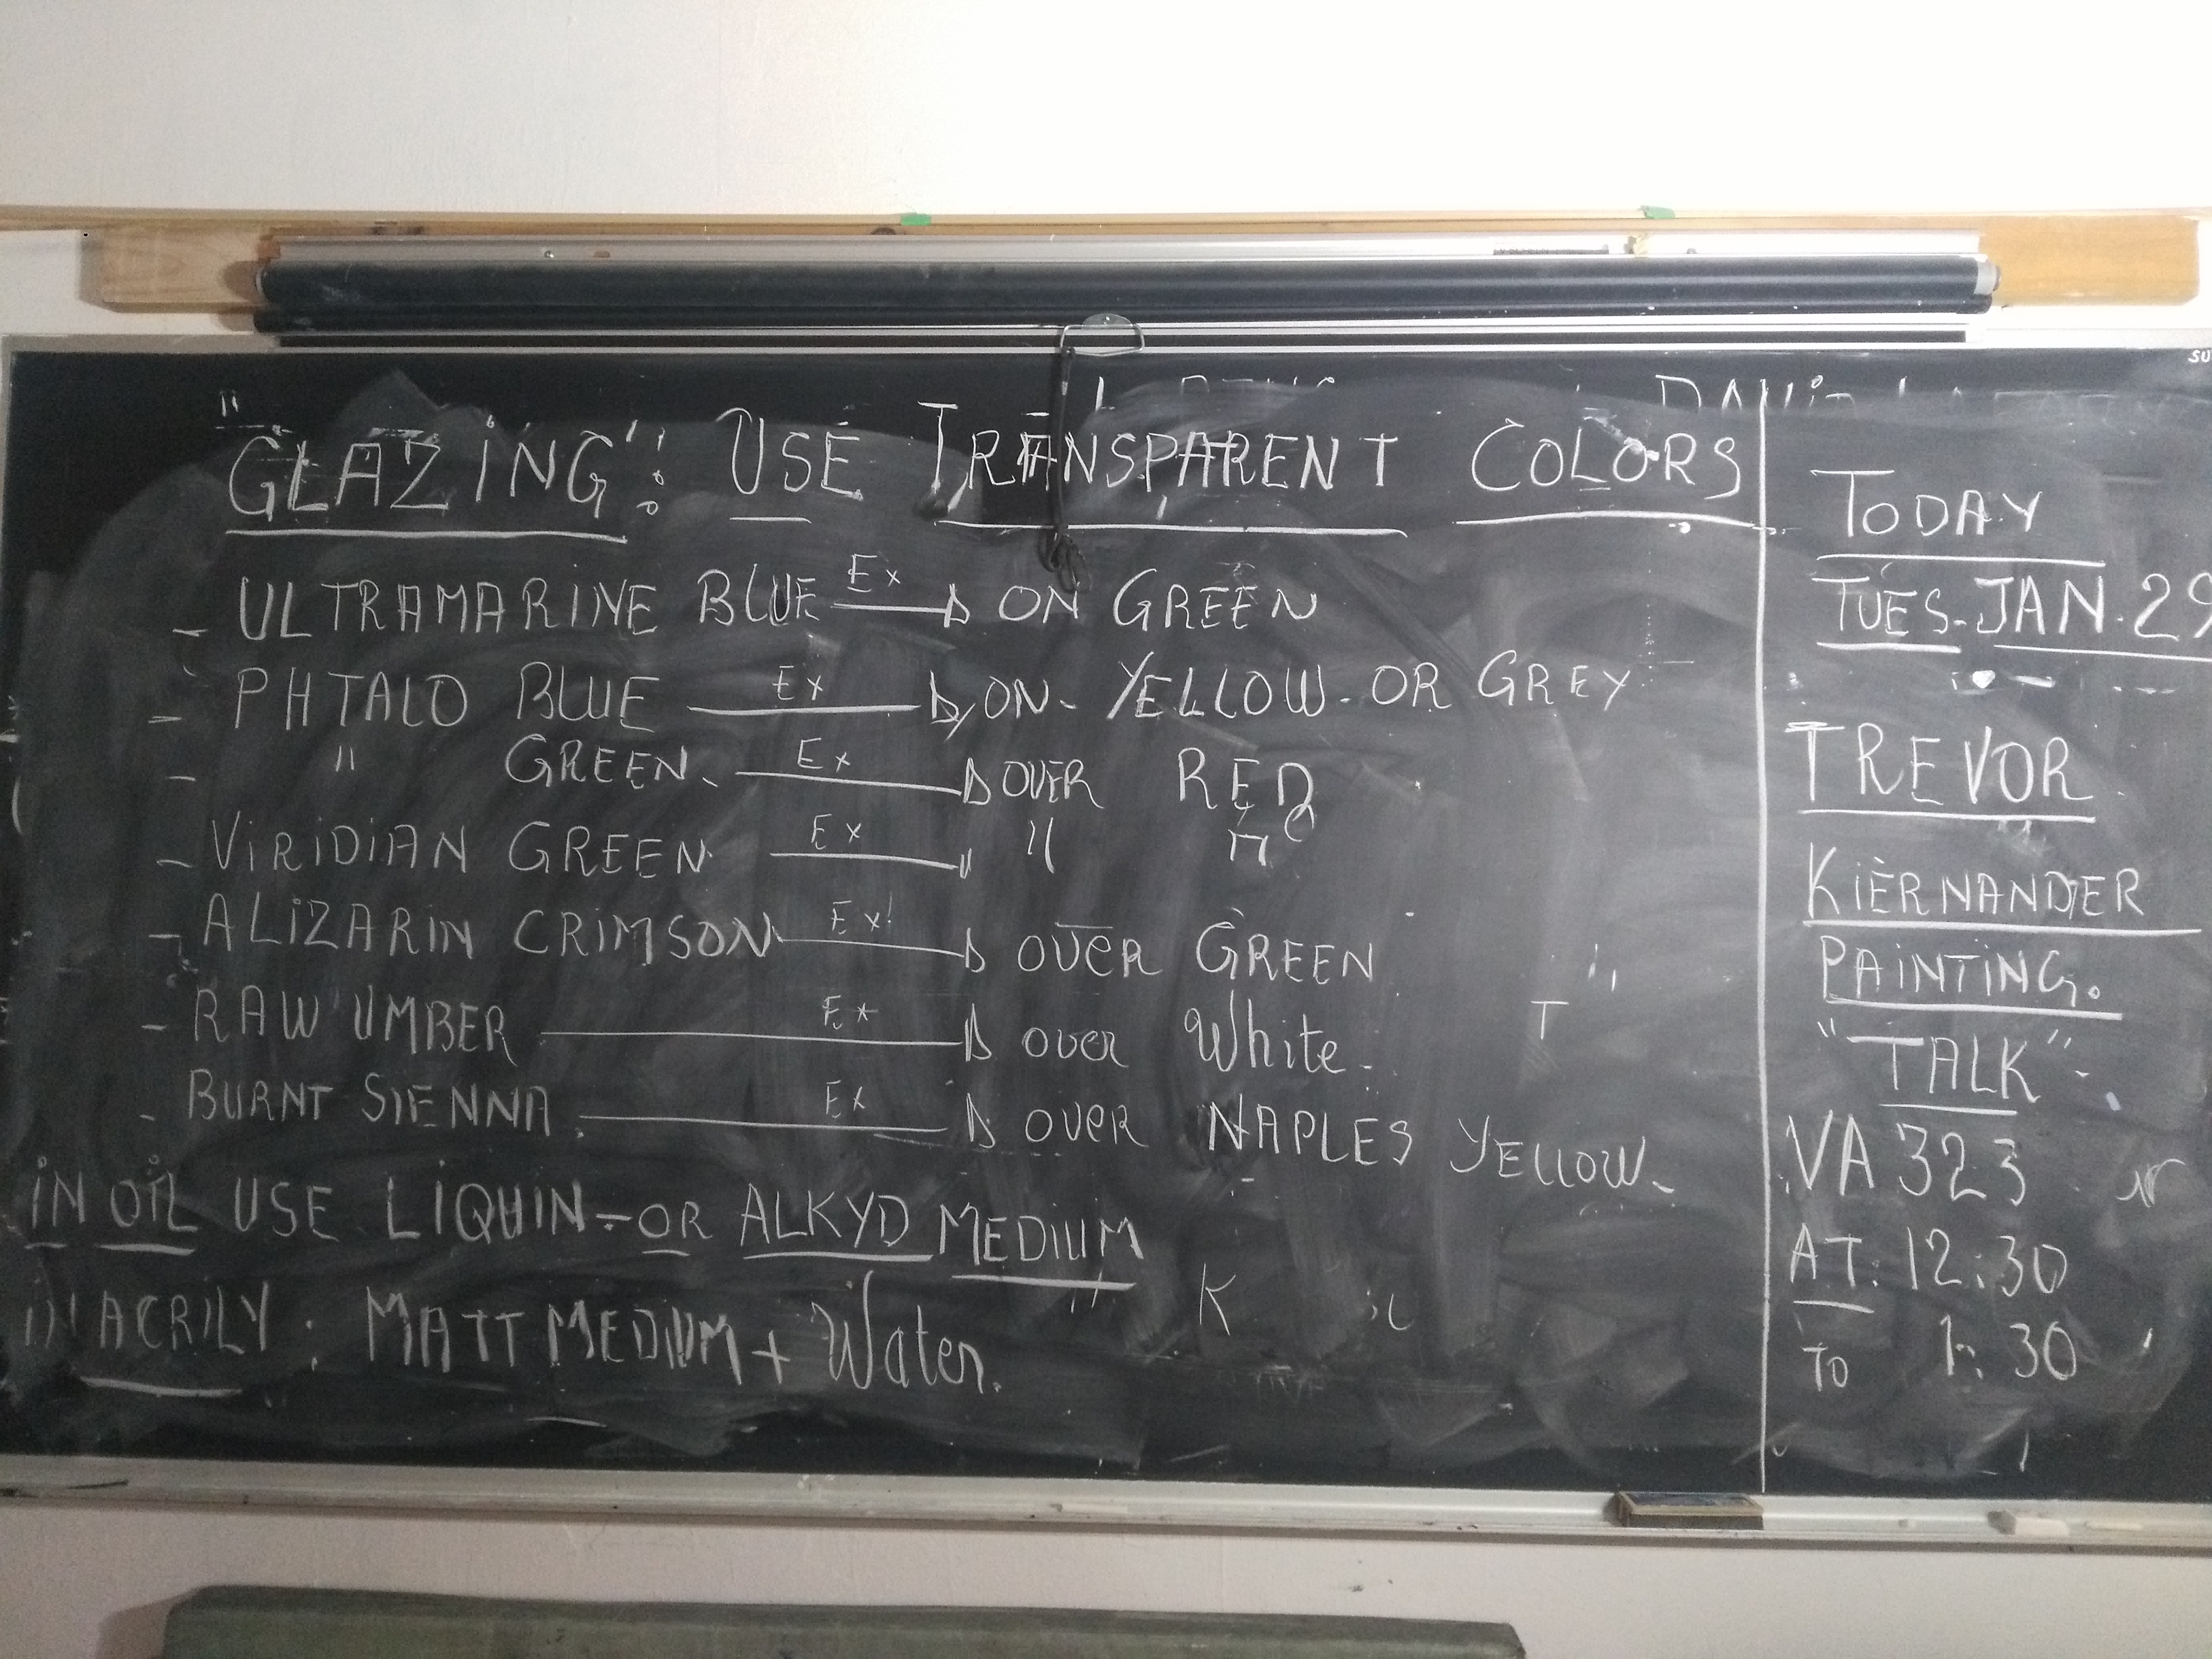 "GLAZING": USE TRANSPARENT COLORS
- ULTRAMARINE BLUE Ex → ON GREEN
- PHTALO BLUE Ex → ON - YELLOW - OR GREY
- " GREEN Ex → OVER RED
- VIRIDIAN GREEN Ex " "
- ALIZARIN CRIMSON Ex → OVER GREEN
- RAW UMBER Ex → over White
- BURNT SIENNA Ex → OVER NAPLES YELLOW
IN OIL USE LIQUIN - OR ALKYD MEDIUM
IN ACRILY: MATT MEDIUM + Water.
TODAY
TUES - JAN. 29
TREVOR
KIERNANDER
PAINTING.
"TALK"
VA 323
AT: 12:30
TO 1:30